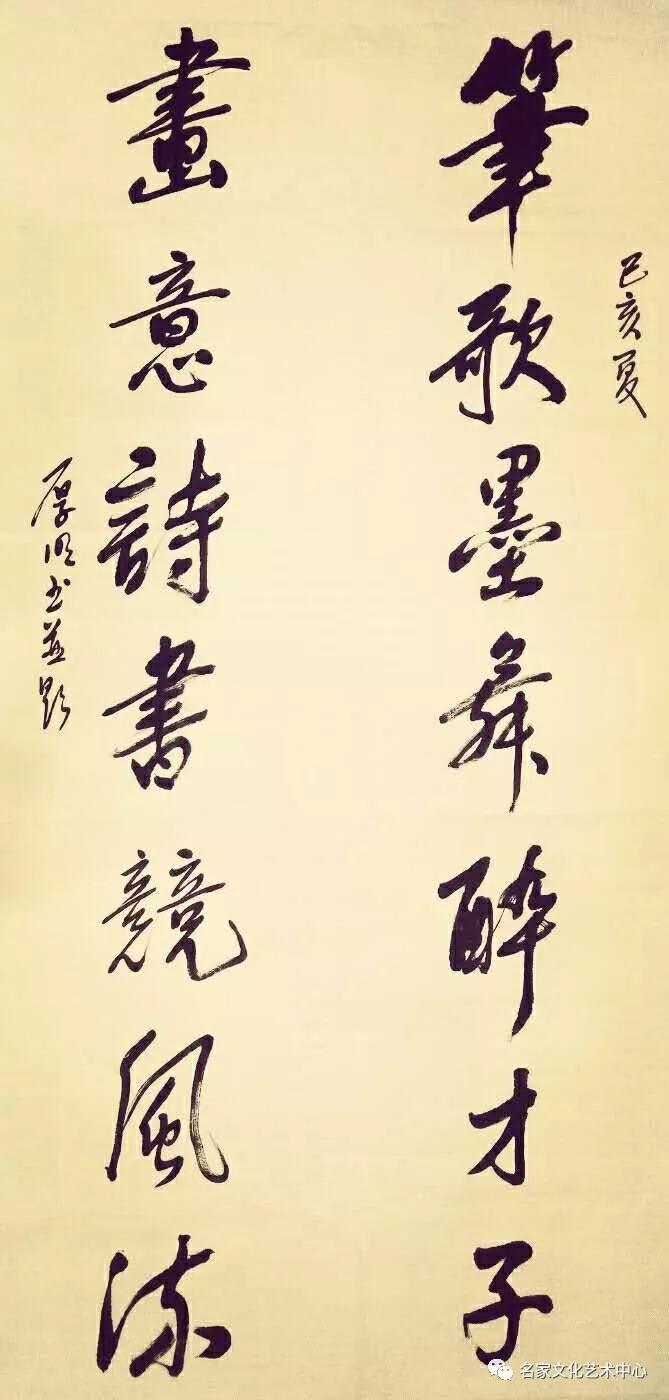 己亥夏
筆歌墨舞醉才子
畫意詩書競風流
厚明書並題
名家文化艺术中心